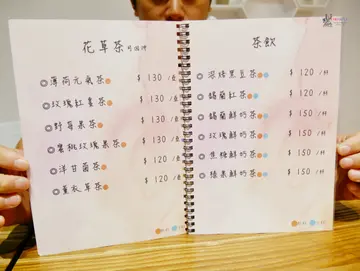 花草茶 可回沖
◎薄荷元氣茶 $130/壺
◎玫瑰紅棗茶 $130/壺
◎野莓果茶 $130/壺
◎蜜桃玫瑰果茶 $130/壺
◎洋甘菊茶 $120/壺
◎薰衣草茶 $120/壺
茶飲
◎黑豆茶 $120/杯
◎錫蘭紅茶 $120/杯
◎錫蘭鮮奶茶 $150/杯
◎玫瑰鮮奶茶 $150/杯
◎焦糖鮮奶茶 $150/杯
◎榛果鮮奶茶 $150/杯